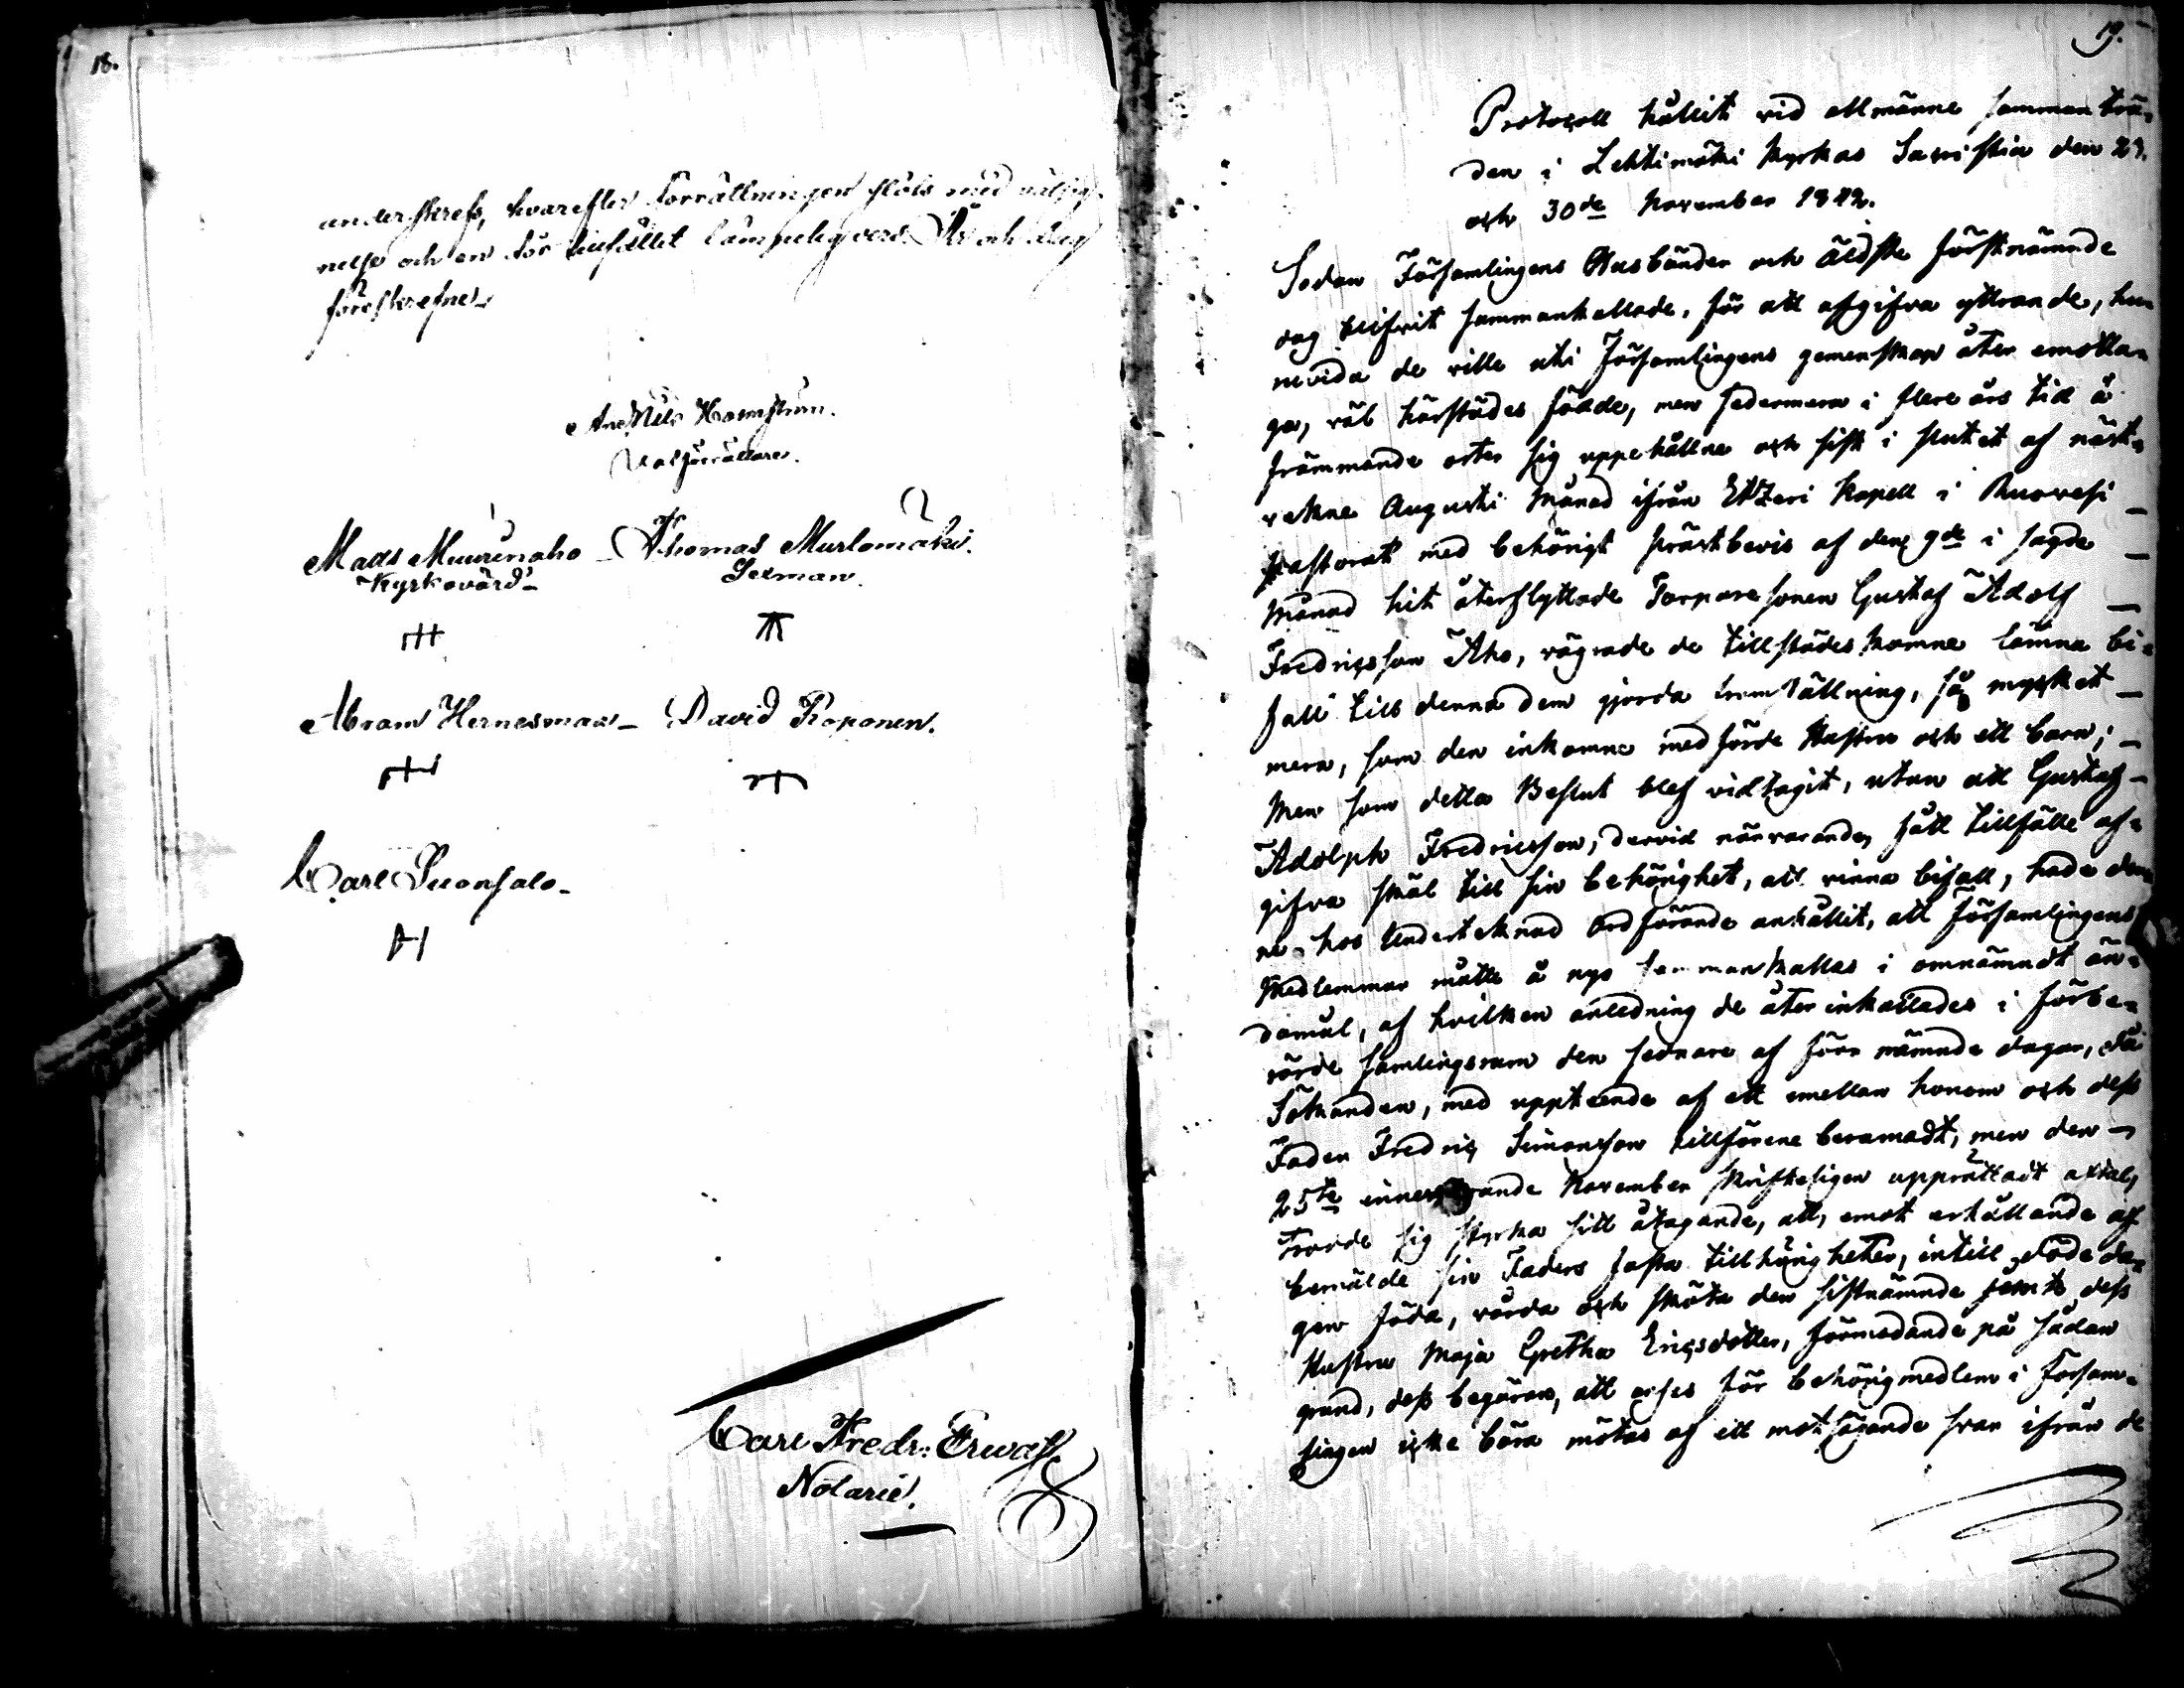 18.
underskrefs, hvarefter Förrättningen slöts med välsig-
nelse och en för tillfället lämpelig vers. År och dag
föreskrefne
And. Nils Holmström.
Valförrättare.
Mads Muurinaho Thomas Murtomäki.
Kyrkovärd Sexman.
Abram Hernesmaa David Koponen.
Carl Suonsalo
Carl Fredr: Erwast
Notarie.
19.
Protocoll hållit vid allmänne samman trä-
den i Lehtimäki Kyrkas Sacristia den 29.
och 30de November 1842.
Sedan Församlingens Husbönder och äldste förstnämnde
dag blifvit sammankallade, för att afgifva yttrande, hu-
ruvida de ville uti Församlingens gemenskap åter emotta-
ga, väl härstädes födde, men sedermera i flere års tid å
främmande orter sig uppehållne och sist i slutet af näst-
vekne Augusti Månad ifrån Etzeri Kapell i Ruovesi
pastorat med behörigt prästbevis af den 9de i sagde
Månad hit återflyttade Torpare sonen Gustaf Adolf
Fredricsson Aho, vägrade de tillstädes komne lämna bi-
fall till denna dem gjorda framställning, så mycket
mera, som den inkomne medförde Hustru och ett barn;
Men som detta Beslut blef vidtagit, utan att Gustaf
Adolph Fredricsson, dervid närvarande, fått tillfälle af-
gifva skäl till sin behörighet, att vinna bifall, hade den-
ne hos Undertecknad Ordförande anhållit, att Församlingens
Medlemmar måtte å nyo sammankallas i omnämndt än-
damål, af hvilken anledning de åter inkallades i förbe-
rörde samlingsrum den sednare af förr nämnde dagar, då
Sökanden, med uppteende af ett emellan honom och dess
Fader Fredric Simonsson tillförene beramadt, men den
25te innevarande November skrifteligen upprättadt aftal,
trodde sig styrka sitt åtagande, att, emot erhållande af
bemälde sin Faders fasta tillhörigheter, intill döde da-
gar föda, vårda och sköta den sistnämnde jemte dess
Hustru Maja Gretha Ericsdotter, förmodande på sådan
grund, dess begäran, att anses för behörig medlem i Försam-
lingen icke böra mötas af ett motsägande svar ifrån de